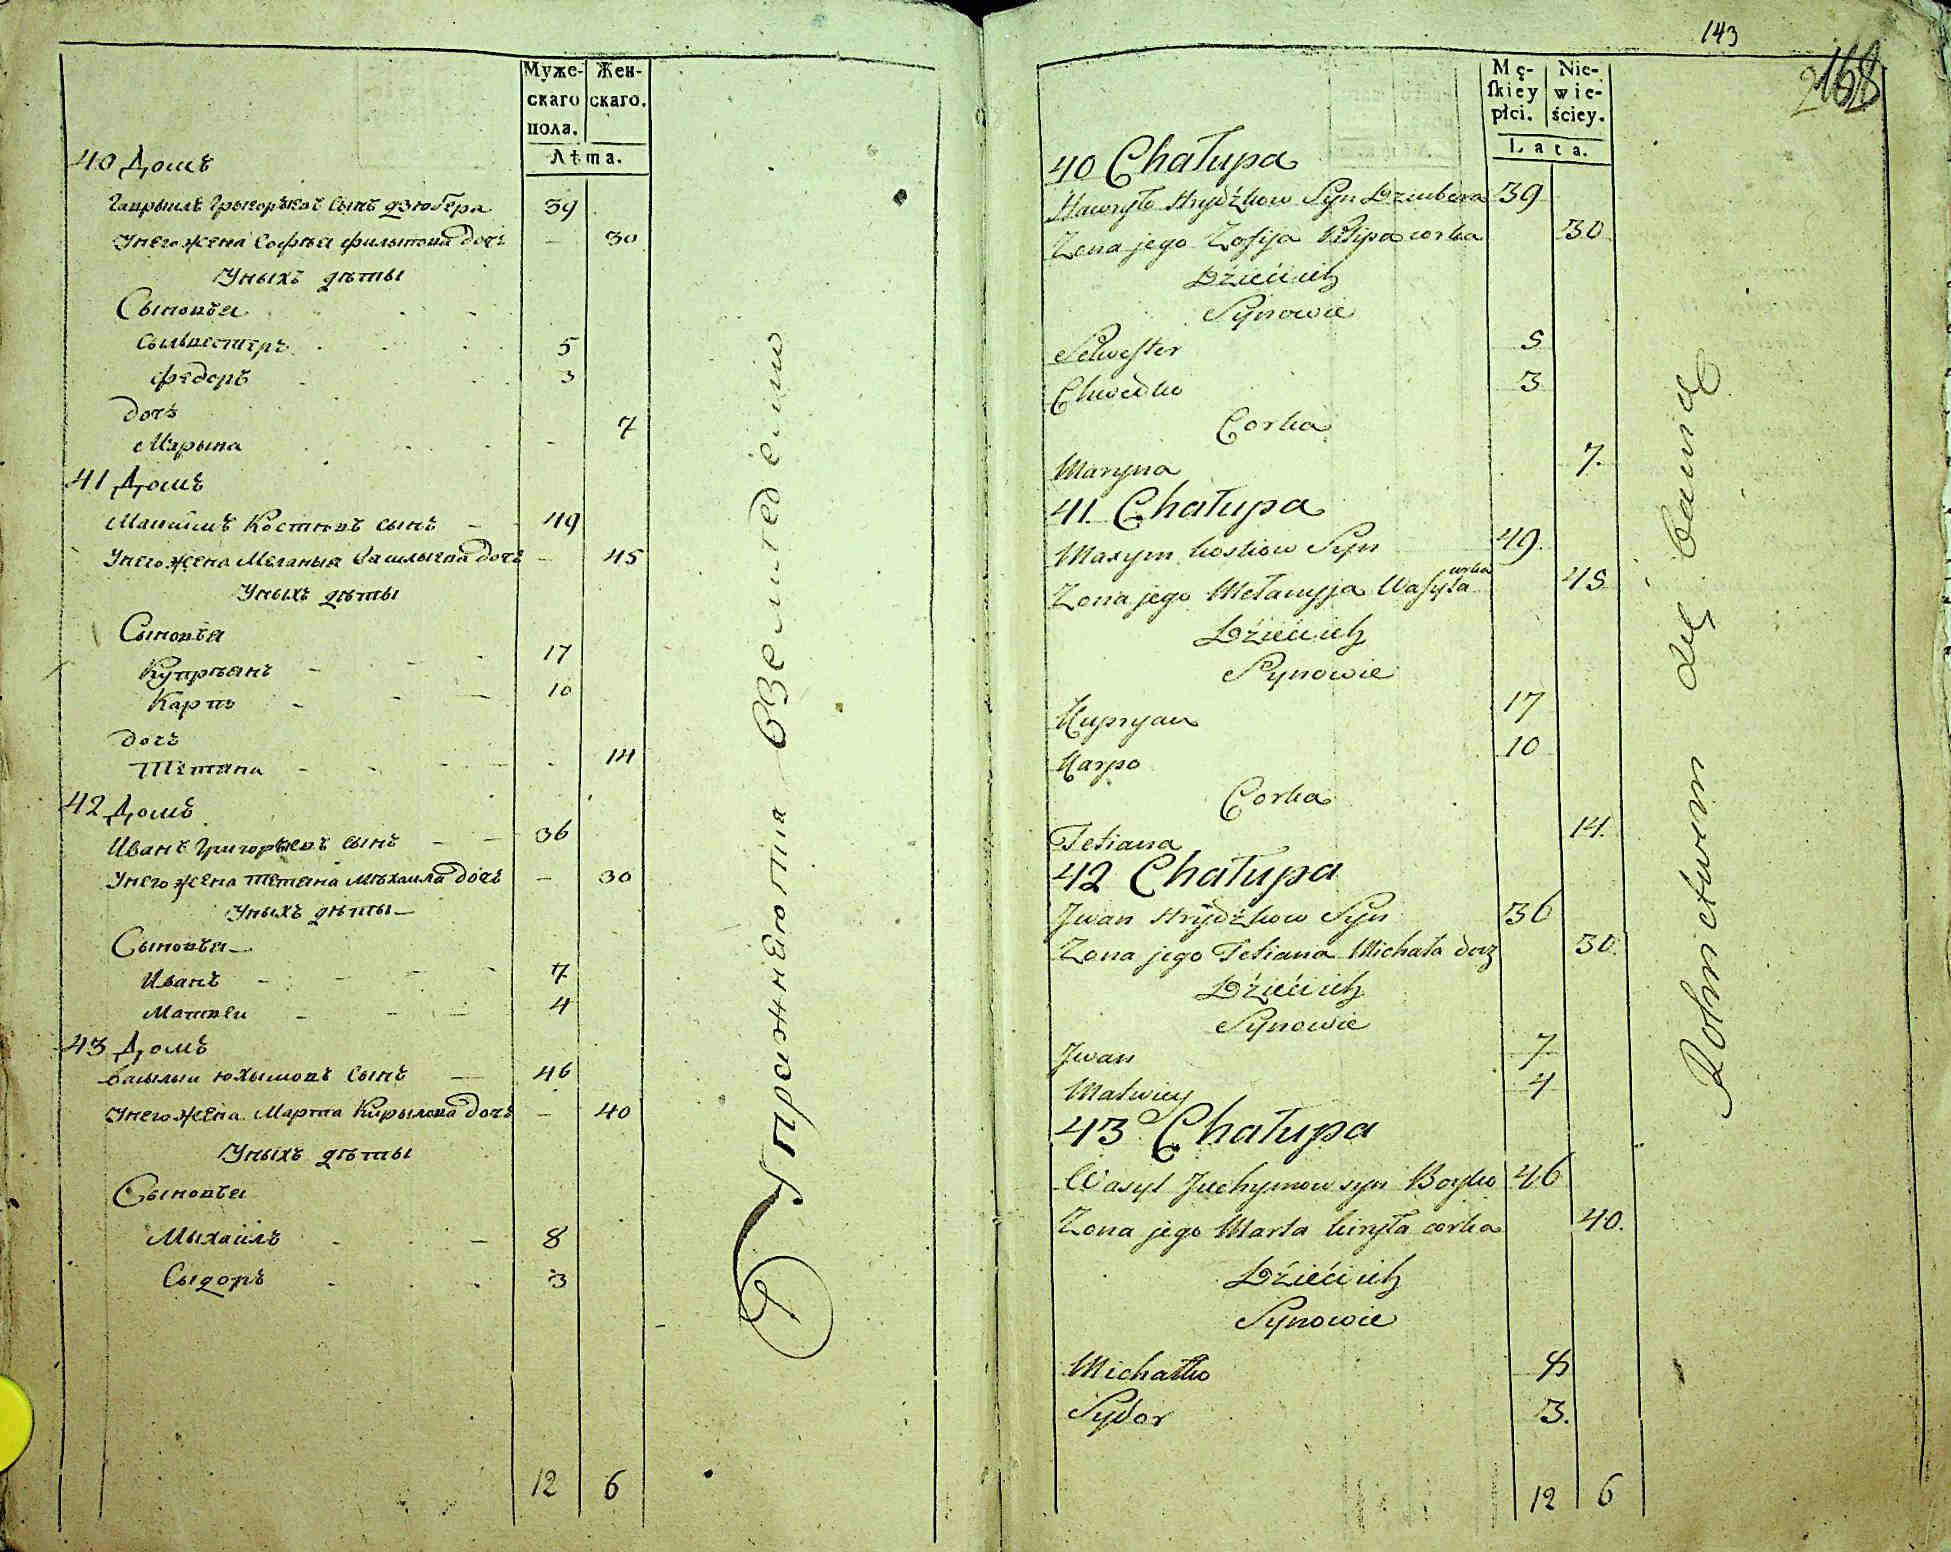 Муже-
скаго
пола.
Жен-
скаго.
Лѣта.
40 Домъ
Гаврыилъ Грыгорьевъ Сынъ дзюбера 39
У него жена Софья Филыпова дочь - 30
У ныхъ дѣты
Сыновья
Сыльвестеръ 5
Федоръ 3
дочь
Марына - 7
41 Домъ
Максимъ Костювъ сынъ - 49
У него жена Меланыя Васылева дочь - 45
У ныхъ дѣты
Сыновья
Купрѣянъ - 17
Карпъ - 10
дочь
Тетяна - 14
42 Домъ
Иванъ Григорьевъ сынъ - 36
У него жена Тетяна Мѣхаила дочь - 30
У ныхъ дѣты
Сыновья
Иванъ - 7
Матвеи - 4
43 Домъ
Васылыи Юхымовъ Сынъ - 46
У него жена Марта Кирылова дочь - 40
У ныхъ дѣты
Сыновья
Мыхаилъ - 8
Сыдоръ 3
12 6
Упражнѣются вземледелию
143
168
Mę-
ſkiey
płci.
Nie-
wie-
ściey.
Lata.
40 Chałupa
Hawryło Hrydźkow Syn Dziubera 39
Zona jego Zofija Filipa corka 30
Dźieci ich
Synowie
Selwester 5
Chwedko 3
Corka
Maryna 7.
41 Chałupa
Maxym Kostiow Syn 49.
Zona jego Mełanyja Wasyla corka 45
Dźieci ich
Synowie
Kupryan 17
Karpo 10
Corka
Tetiana 14.
42 Chałupa
Jwan Hrydźkow Syn 36
Zona jego Tetiana Michała docz 30.
Dźieci ich
Synowie
Jwan 7
Matwiey 4
43 Chałupa
Wasyl Juchymow syn Boyko 46
Zona jego Marta Kiryła corka 40.
Dźieci ich
Synowie
Michałko 8
Sydor 3.
12 6
Rolnictwem się bawią